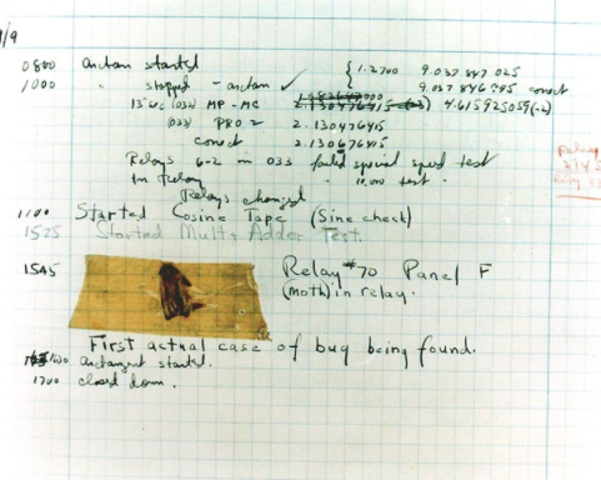 9/9
0800 arctan started { 1.2700 9.037 847 025
1000 " stopped - arctan ✓ 9.037 846 995 correct
13"uc (032) MP - MC 2.130476415 4.615925059(-2)
(033) PRO 2 2.130476415
correct 2.130676415
Relays 6-2 in 033 failed special speed test
in relay " 10,000 test.
Relays changed
1100 Started Cosine Tape (Sine check)
1525 Started Mult + Adder Test.
1545 Relay #70 Panel F
(moth) in relay.
First actual case of bug being found.
1630 arctangent started.
1700 closed down.